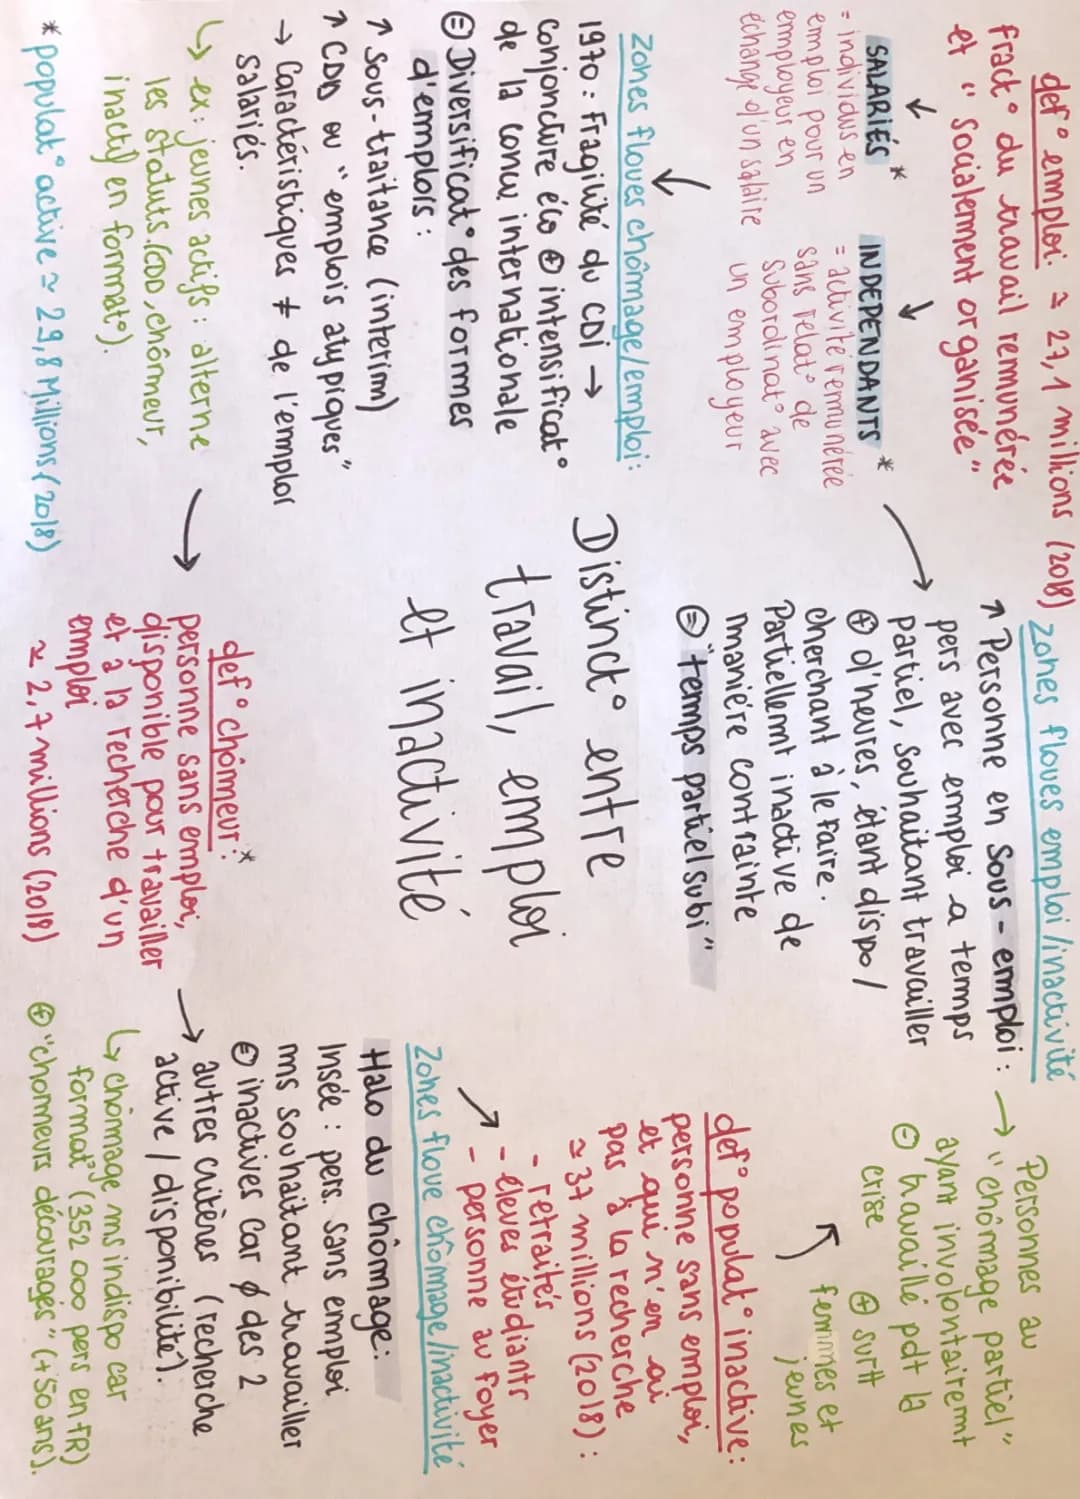 def° emploi: ≃ 27,1 millions (2018)
fract° du travail rémunérée
et "socialement organisée"
SALARIÉS *
= individus en
emploi pour un
employeur en
échange d'un salaire
INDEPENDANTS *
= activité rémunérée
sans relat° de
subordinat° avec
un employeur
Zones floues chômage/emploi:
1970: Fragilité du CDI →
conjoncture éco ⊕ intensificat°
de la concu internationale
⊜ Diversificat° des formes
d'emplois :
↗ Sous-traitance (interim)
↗ CDD ou "emplois atypiques"
→ Caractéristiques ≠ de l'emploi
salariés.
↳ ex: jeunes actifs : alterne
les statuts (CDD, chômeur,
inactif en format°).
* populat° active ≃ 29,8 Millions (2018)
Zones floues emploi/inactivité
↗ Personne en Sous-emploi :
pers avec emploi a temps
partiel, souhaitant travailler
⊕ d'heures, étant dispo /
cherchant à le faire.
Partiellemnt inactive de
manière contrainte
⊜ "temps partiel subi"
→ Personnes au
"chômage partiel"
ayant involontairemt
⊖ travaillé pdt la
crise ⊕ surtt
femmes et
jeunes
Distinct° entre
travail, emploi
et inactivité
def° chômeur:*
personne sans emploi,
disponible pour travailler
et à la recherche d'un
emploi
≃ 2,7 millions (2018)
def° populat° inactive:
personne sans emploi,
et qui n'en ai
pas à la recherche
≃ 37 millions (2018) :
- retraités
- élèves étudiants
- personne au foyer
Zones floue chômage/inactivité
Halo du chômage:
Insée : pers. sans emploi
ms souhaitant travailler
⊜ inactives car ∅ des 2
autres critères (recherche
active / disponibilité).
↳ chômage ms indispo car
format° (352 000 pers en FR)
⊕ "chômeurs découragés" (+50ans).